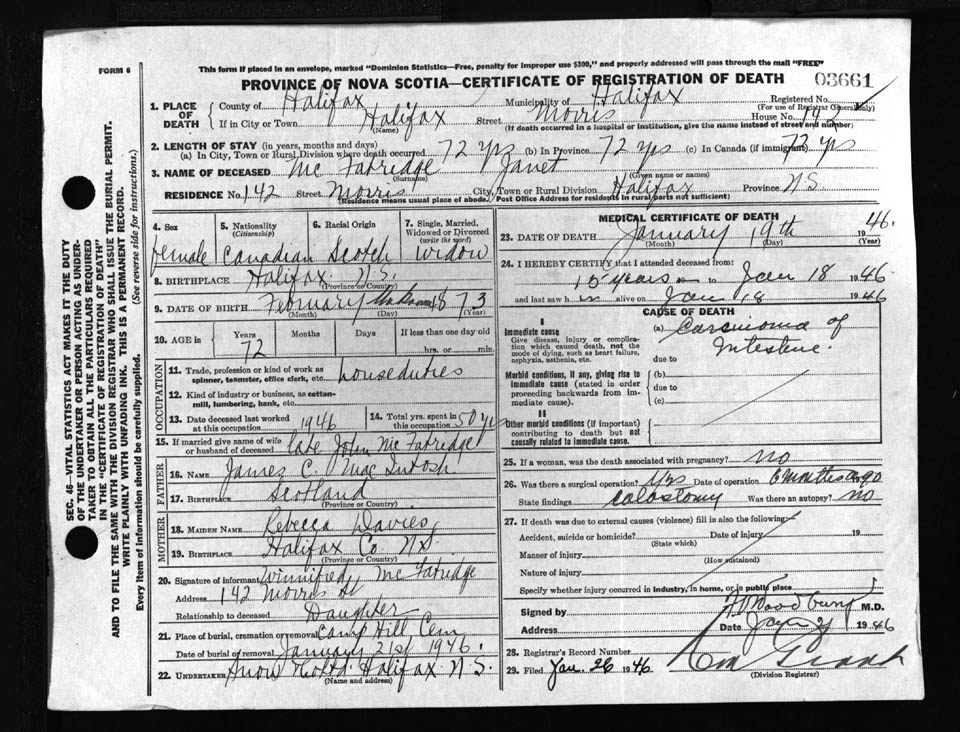 FORM 6
This form if placed in an envelope, marked "Dominion Statistics—Free, penalty for improper use $300," and properly addressed will pass through the mail "FREE"
PROVINCE OF NOVA SCOTIA—CERTIFICATE OF REGISTRATION OF DEATH
03661
1. PLACE OF DEATH County of Halifax Municipality of Halifax Registered No.
(For use of Registrar General only)
If in City or Town Halifax Street Morris House No. 142
(Name) (If death occurred in a hospital or institution, give the name instead of street and number)
2. LENGTH OF STAY (in years, months and days)
(a) In City, Town or Rural Division where death occurred 72 yrs (b) In Province 72 yrs (c) In Canada (if immigrant) 72 yrs
3. NAME OF DECEASED Mc Fatridge Janet
(Surname) (Given name or names)
RESIDENCE No. 142 Street Morris City, Town or Rural Division Halifax Province N.S.
(Residence means usual place of abode. Post Office Address for residents in rural parts not sufficient)
4. Sex female
5. Nationality (Citizenship) Canadian
6. Racial Origin Scotch
7. Single, Married, Widowed or Divorced (write the word) Widow
8. BIRTHPLACE Halifax N.S.
(Province or Country)
9. DATE OF BIRTH February 1873
(Month) (Day) (Year)
10. AGE in Years 72 Months Days If less than one day old
hrs. or min.
OCCUPATION
11. Trade, profession or kind of work as spinner, teamster, office clerk, etc. house duties
12. Kind of industry or business, as cotton-mill, lumbering, bank, etc.
13. Date deceased last worked at this occupation 1946
14. Total yrs. spent in this occupation 50 yrs
15. If married give name of wife or husband of deceased late John Mc Fatridge
FATHER
16. NAME James C. Mac Intosh
17. BIRTHPLACE Scotland
(Province or Country)
MOTHER
18. MAIDEN NAME Rebecca Davies
19. BIRTHPLACE Halifax Co. N.S.
(Province or Country)
20. Signature of informant Winnifred Mc Fatridge
Address 142 Morris St
Relationship to deceased Daughter
21. Place of burial, cremation or removal Camp Hill Cem
Date of burial or removal January 21st 1946.
22. UNDERTAKER Snow Halifax N.S.
(Name and address)
MEDICAL CERTIFICATE OF DEATH
23. DATE OF DEATH January 19th 1946
(Month) (Day) (Year)
24. I HEREBY CERTIFY that I attended deceased from:
15 years to Jan 18 1946
and last saw h alive on Jan 18 1946
CAUSE OF DEATH
I
Immediate cause
Give disease, injury or complication which caused death, not the mode of dying, such as heart failure, asphyxia, asthenia, etc.
(a) Carcinoma of Intestine
due to
Morbid conditions, if any, giving rise to immediate cause (stated in order proceeding backwards from immediate cause).
(b)
due to
(c)
II
Other morbid conditions (if important) contributing to death but not causally related to immediate cause.
25. If a woman, was the death associated with pregnancy? no
26. Was there a surgical operation? Yes Date of operation 6 months ago
State findings colostomy Was there an autopsy? no
27. If death was due to external causes (violence) fill in also the following:
Accident, suicide or homicide? Date of injury 19
(State which)
Manner of injury
(How sustained)
Nature of injury
Specify whether injury occurred in industry, in home, or in public place
Signed by M.D.
Address Date Jan 21 1946
28. Registrar's Record Number
29. Filed Jan. 26 1946
(Division Registrar)
SEC. 46—VITAL STATISTICS ACT MAKES IT THE DUTY
OF THE UNDERTAKER OR PERSON ACTING AS UNDER-
TAKER TO OBTAIN ALL THE PARTICULARS REQUIRED
IN THE "CERTIFICATE OF REGISTRATION OF DEATH"
AND TO FILE THE SAME WITH THE DIVISION REGISTRAR WHO SHALL ISSUE THE BURIAL PERMIT.
WRITE PLAINLY WITH UNFADING INK. THIS IS A PERMANENT RECORD.
Every item of information should be carefully supplied. (See reverse side for instructions.)